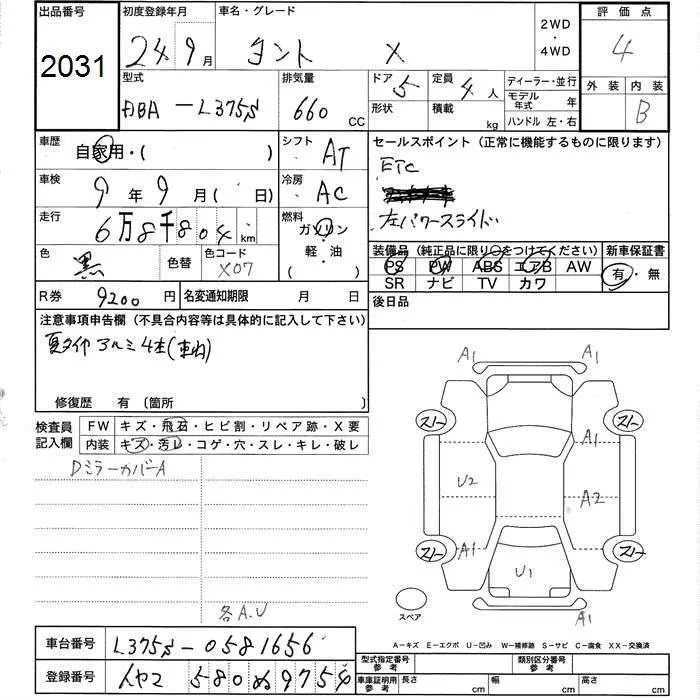 出品番号
2031
初度登録年月
24 9月
車名・グレード
タント X
2WD
・
4WD
評価点
4
外装 内装
B
型式
DBA-L375S
排気量
660 CC
ドア 5
形状
定員 4人
積載 kg
ディーラー・並行
モデル年式 年
ハンドル 左・右
車歴
自家用・( )
シフト
AT
車検
9年9月( 日)
冷房
AC
走行
6万8千804km
燃料
ガソリン
・
軽・油
( )
色
黒
色替
色コード
X07
セールスポイント (正常に機能するものに限ります)
ETC
左パワースライド
装備品 (純正品に限り○をつけてください)
PS PW ABS エアB AW
SR ナビ TV カワ
新車保証書
有・無
R券 9200円
名変通知期限 月 日
後日品
注意事項申告欄 (不具合内容等は具体的に記入して下さい)
夏タイヤ アルミ 4本(車内)
修復歴 有 (箇所 )
検査員
記入欄
FW キズ・飛石・ヒビ割・リペア跡・X要
内装 キズ・汚レ・コゲ・穴・スレ・キレ・破レ
DミラーカバーA
各A.U
A1 A1
スリ- スリ-
A1
U2 A2
スリ- A1 スリ-
U1
A1 A1
スペア
A-キズ E-エクボ U-凹み W-補修跡 S-サビ C-腐食 XX-交換済
車台番号 L375S-0581656
登録番号 580ぬ975
型式指定番号
参考
類別区分番号
参考
車庫証明用
参考
長さ cm
幅 cm
高さ cm